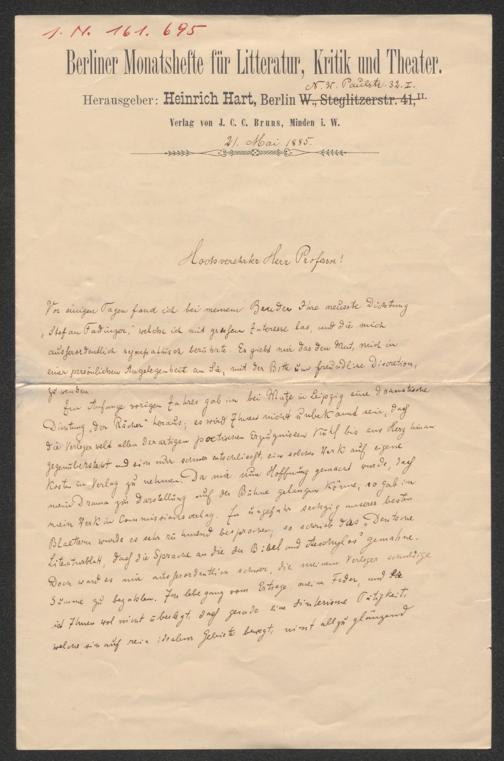 I. N. 161.695
Berliner Monatshefte für Litteratur, Kritik und Theater.
N. W. Paulstr. 32. I.
Herausgeber: Heinrich Hart, Berlin W., Steglitzerstr. 41, II.
Verlag von J. C. C. Bruns, Minden i. W.
21. Mai 1885.
Hochverehrter Herr Professor!
Vor einigen Tagen fand ich bei meinem Bruder Ihre neueste Dichtung
„Stefan Fadinger," welche ich mit großem Interesse las, und die mich
ausserordentlich sympathisch berührte. Es giebt mir das den Mut, mich in
einer persönlichen Angelegenheit an Sie, mit der Bitte um freundliche Discretion,
zu wenden.
Zu Anfange vorigen Jahres gab ich bei Mutze in Leipzig eine dramatische
Dichtung „der Rächer" heraus; es wird Ihnen nicht unbekannt sein, daß
die Verlegerwelt allen derartigen poetischen Erzeugnissen kühl bis ans Herz hinan
gegenübersteht und sich nur schwer entschliesst, ein solches Werk auf eigene
Kosten in Verlag zu nehmen. Da mir nun Hoffnung gemacht wurde, daß
mein Drama zur Darstellung auf der Bühne gelangen könne, so gab ich
mein Werk in Commissionsverlag. In ungefähr sechzig unserer besten
Blaettern wurde es sehr rühmend besprochen; so schrieb das „Deutsche
Literaturblatt, daß die Sprache an die der Bibel und Aeschylos' gemahne.
Doch ward es mir ausserordentlich schwer, die meinem Verleger schuldige
Summe zu bezahlen. Ich lebe ganz vom Ertrage meiner Feder, und
ich Ihnen wol nicht überlegt, daß gerade eine literarische Tätigkeit,
welche sich auf rein idealem Gebiete bewegt, nicht allzu glänzend